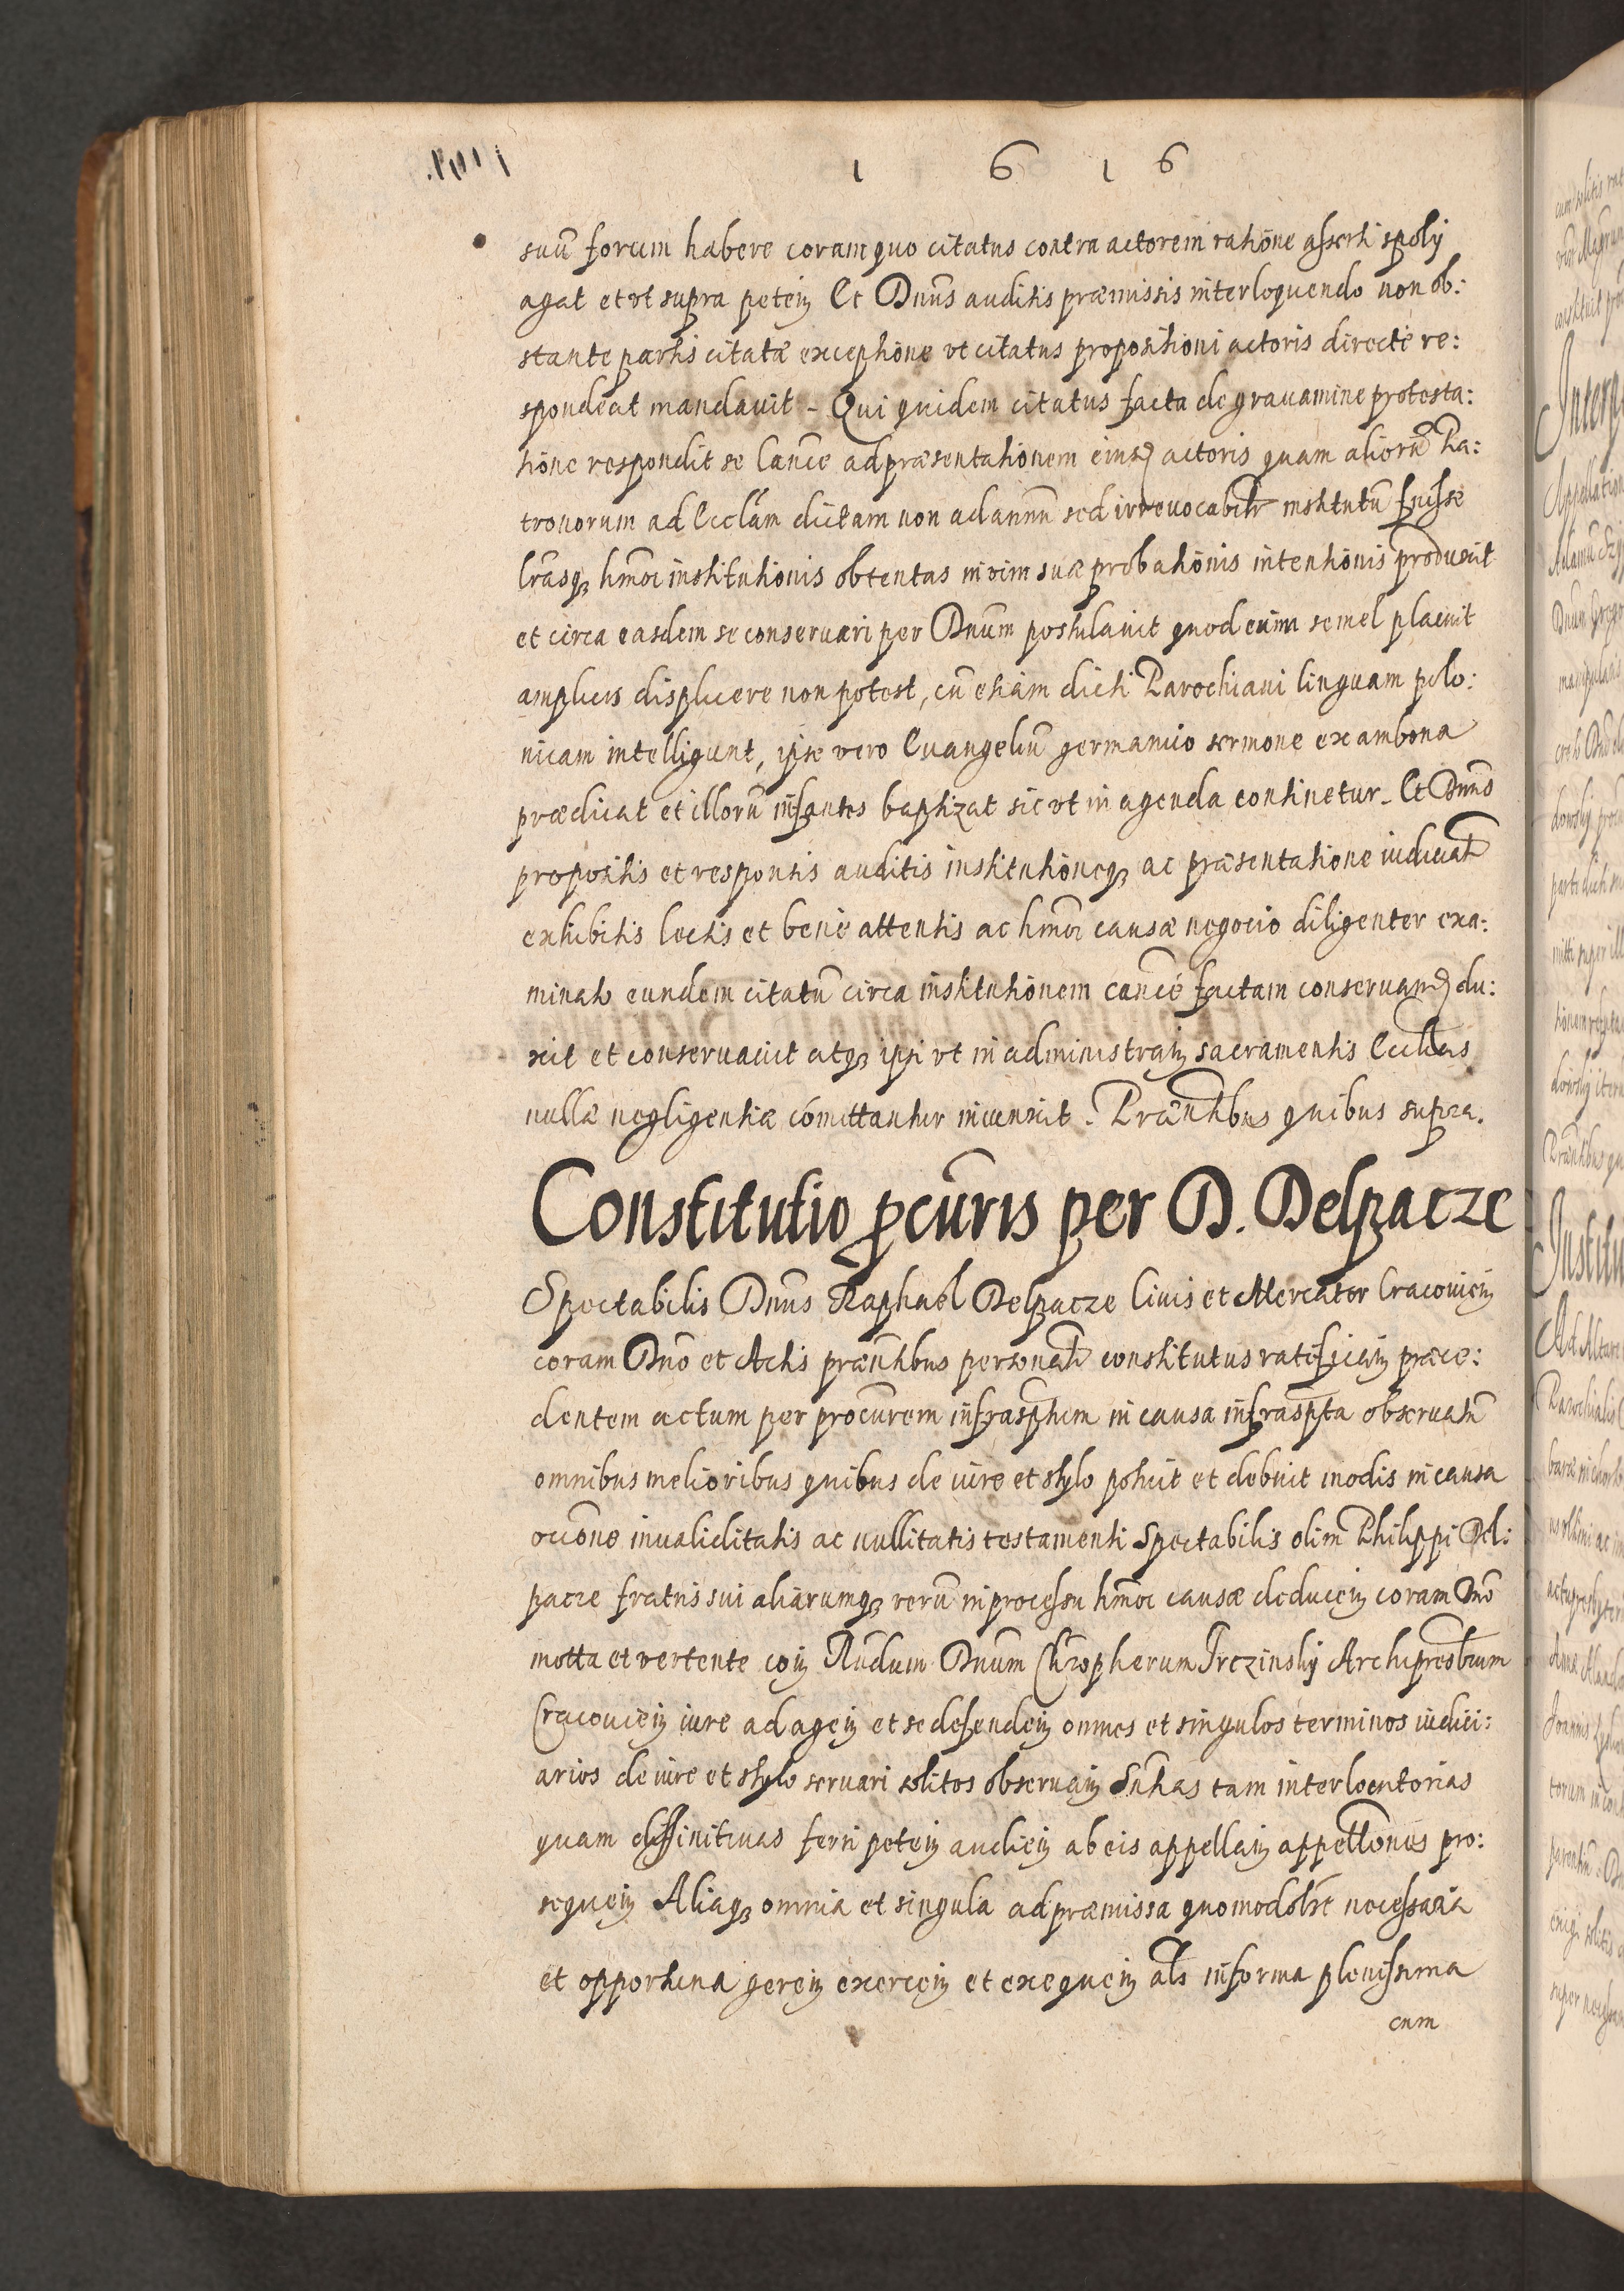 1 6 1 6
suũ forum habere coram quo citatus contra actorem rationẽ asserti spolij
agat et ut supra peteñ Et Dnũs auditis præmissis interloquendo non ob:
stante partis citatæ exceptione ut citatus propositioni actoris directè re:
spondeat mandauit - Qui quidem citatus facta de grauamine protesta:
tione respondit se Canc̃e ad præsentationem eiusd actoris quam aliorũ Pa:
tronorum ad Eccl̃am dictam non ad annũ sed irreuocabilr̃ institutũ fuisse
lr̃asq hmõi institutionis obtentas in vim suæ probationis intentionis produxit
et circa easdem se conseruari per Dnũm postulauit quod enim semel placuit
amplius displicere non potest, cũ etiam dicti Parochiani linguam polo:
nicam intelligunt, ipse vero Euangeliũ germanico sermone ex ambona
prædicat et illorũ infantes baptizat sic ut in agenda continetur - Et Dnũs
propositis et responsis auditis institutioneq ac præsentatione iudicialr̃
exhibitis lectis et benè attentis ac hmõi causæ negocio diligenter exa:
minato eundem citatũ circa institutionem canc̃e factam conseruand du:
xit et conseruauit atq ipsi ut in administrañ sacramentis Eccl̃æ
nullæ negligentiæ cõmittantur iniunxit. Præñtibus quibus supra.
Constitutio pcũris per D. Delpacze
Spectabilis Dnũs Raphael Delpacze Ciuis et Mercator Cracouieñ
coram Dnõ et Actis præñtibus personalr̃ constitutus ratificañ præce:
dentem actum per procũrem infrasp̃tum in causa infrasp̃ta obseruatũ
omnibus melioribus quibus de iure et stylo potuit et debuit modis in causa
occõne inualiditatis ac nullitatis testamenti Spectabilis olim Philippi Del:
pacze fratris sui aliarumq rerũ in processu hmõi causæ deduceñ coram Dnõ
motta et vertente coñ Rñdum Dnũm Chr̃opherum Trczinskij Archipresbr̃um
Cracouieñ iure ad ageñ et se defendeñ omnes et singulos terminos iudici:
arios de iure et stylo seruari solitos obseruañ Sñtias tam interlocutorias
quam diffinitiuas ferri peteñ audieñ ab eis appellañ appellõnes pro:
sequeñ Aliaq omnia et singula ad præmissa quomodolibet necessaria
et opportuna gereñ exerceñ et exequeñ al̃s in forma plenissima
cum